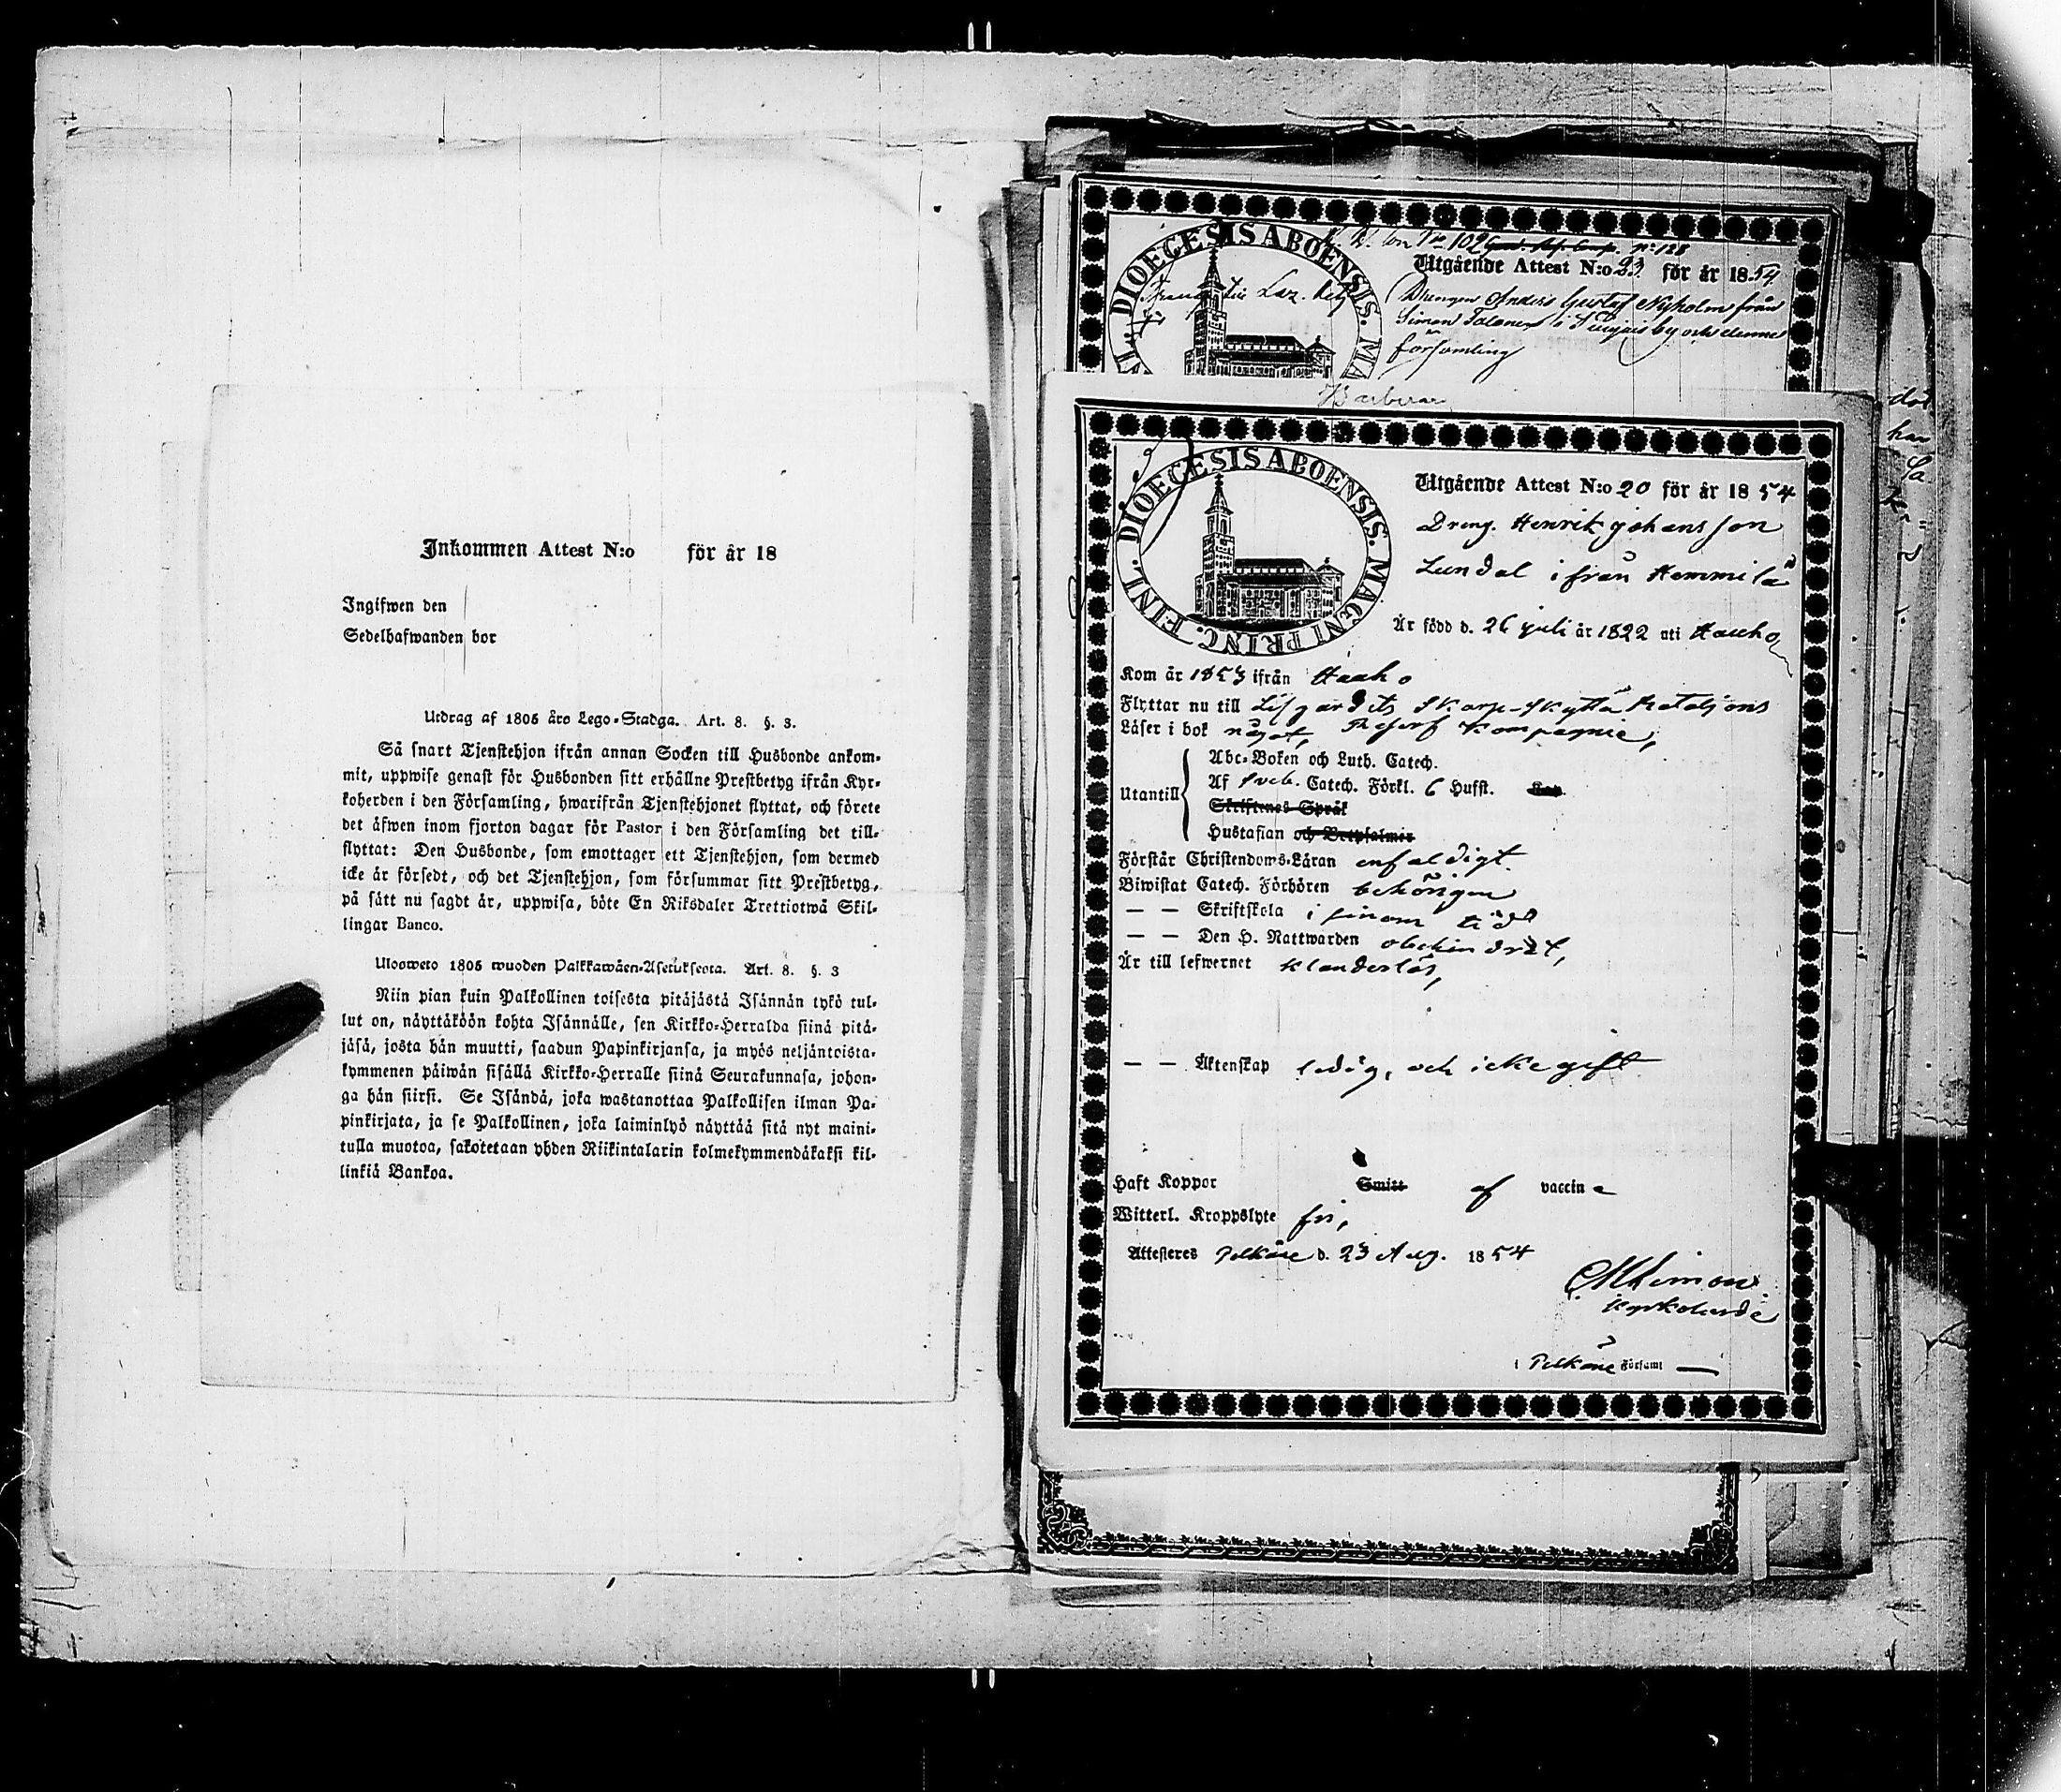 Inkommen Attest N:o för år 18
Ingifwen den
Sedelhafwanden bor
Utdrag af 1805 års Lego-Stadga. Art. 8. §. 3.
Så snart Tjenstehjon ifrån annan Socken till Husbonde ankom-
mit, uppwise genast för Husbonden sitt erhållne Prestbetyg ifrån Kyr-
koherden i den Församling, hwarifrån Tjenstehjonet flyttat, och förete
det äfwen inom fjorton dagar för Pastor i den Församling det till-
flyttat: Den Husbonde, som emottager ett Tjenstehjon, som dermed
icke är försedt, och det Tjenstehjon, som försummar sitt Prestbetyg,
på sätt nu sagdt är, uppwisa, böte En Riksdaler Trettiotwå Skil-
lingar Banco.
Ulosweto 1805 wuoden Palkkawäen-Asetuksesta. Art. 8. §. 3
Niin pian kuin Palkollinen toisesta pitäjästä Isännän tykö tul-
lut on, näyttäköön kohta Isännälle, sen Kirkko-Herralda siinä pitä-
jäsä, josta hän muutti, saadun Papinkirjansa, ja myös neljäntoista-
kymmenen päiwän sisällä Kirkko-Herralle siinä Seurakunnasa, johon-
ga hän siirsi. Se Isändä, joka wastanottaa Palkollisen ilman Pa-
pinkirjata, ja se Palkollinen, joka laiminlyö näyttää sitä nyt maini-
tulla muotoa, sakotetaan yhden Riikintalarin kolmekymmendäkaksi kil-
linkiä Bankoa.
DIOECESIS ABOENSIS. MA
N:o 102 N:o 128
Utgående Attest N:o 23 för år 1854
Drengen Anders Gustaf Nyholm från
Simon i by och denna
församling
Barberare
DIOECESIS ABOENSIS. MAGNI PRINC. FINL.
Utgående Attest N:o 20 för år 1854
Dreng. Henrik Johansson
Lundal ifrån Hemmilä
Är född d. 26 juli år 1822 uti Hauho
Kom år 1853 ifrån Hauho
Flyttar nu till Lifgardets Skarp-skytte Bataljons
Läser i bok något, Kompagnie,
Utantill
Abc-Boken och Luth. Catech.
Af Sveb. Catech. Förkl. 6 Hufst.
Skriftenes Språk
Hustaflan och Botpsalmer
Förstår Christendoms-Läran enfaldigt
Biwistat Catech. Förhören behörigen
— — Skriftskola i sinom tid
— — Den H. Nattwarden obehindrat,
Är till lefwernet klanderlös,
— — Äktenskap ledig, och icke gift
Haft Koppor Smitt af vaccine
Witterl. Kroppslyte fri,
Attesteras Pelkäne d. 23 Aug. 1854
Kyrkoherde
i Pelkäne Församl